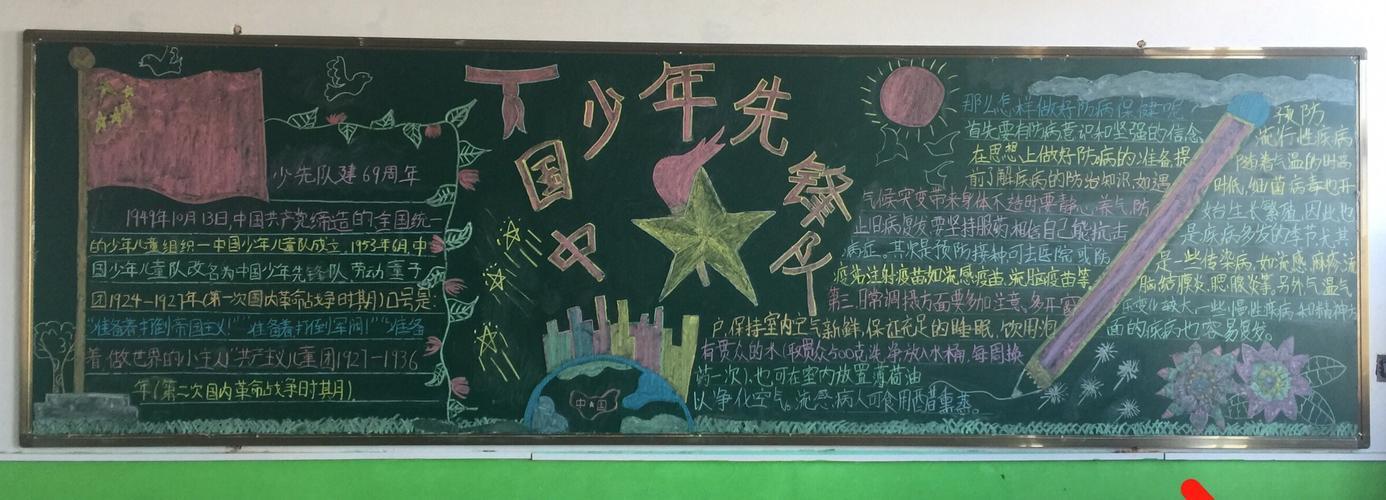 少先队建69周年
1949年10月13日,中国共产党缔造的全国统一
的少年儿童组织一中国少年儿童队成立.1953年6月,中
国少年儿童队改名为中国少年先锋队劳动童子
团1924-1927年(第一次国内革命战争时期)口号是:
"准备着打倒帝国主义!""准备着打倒军阀!""准备
着做世界的小主人!"共产主义儿童团1927-1936
年(第二次国内革命战争时期).
中国少年先锋队
中★国
那么怎样做好防病保健呢
首先要有防病意识和坚强的信念
在思想上做好防病的准备提
前了解疾病的防治知识,如遇
气候突变带来身体不适时要静心、养气,防
止旧病复发要坚持服药相信自己能抗击
病症。其次是预防接种可去医院或防
疫站注射疫苗如流感疫苗、流脑疫苗等
第三,日常调摄方面要多加注意,多开窗
户,保持室内空气新鲜,保证充足的睡眠,饮用泡
有贯众的水(取贯众500克洗净放入水桶,每周换
药一次),也可在室内放置薄荷油
以净化空气。流感病人可食用醋熏蒸。
预防
流行性疾病
随着气温的时高
时低,细菌病毒也开
始生长繁殖,因此,也
是疾病多发的季节尤其
是一些传染病,如流感、麻疹、流
脑、结膜炎、腮腺炎等,另外气温气
压变化较大,一些慢性疾病,和精神方
面的疾病也容易复发。